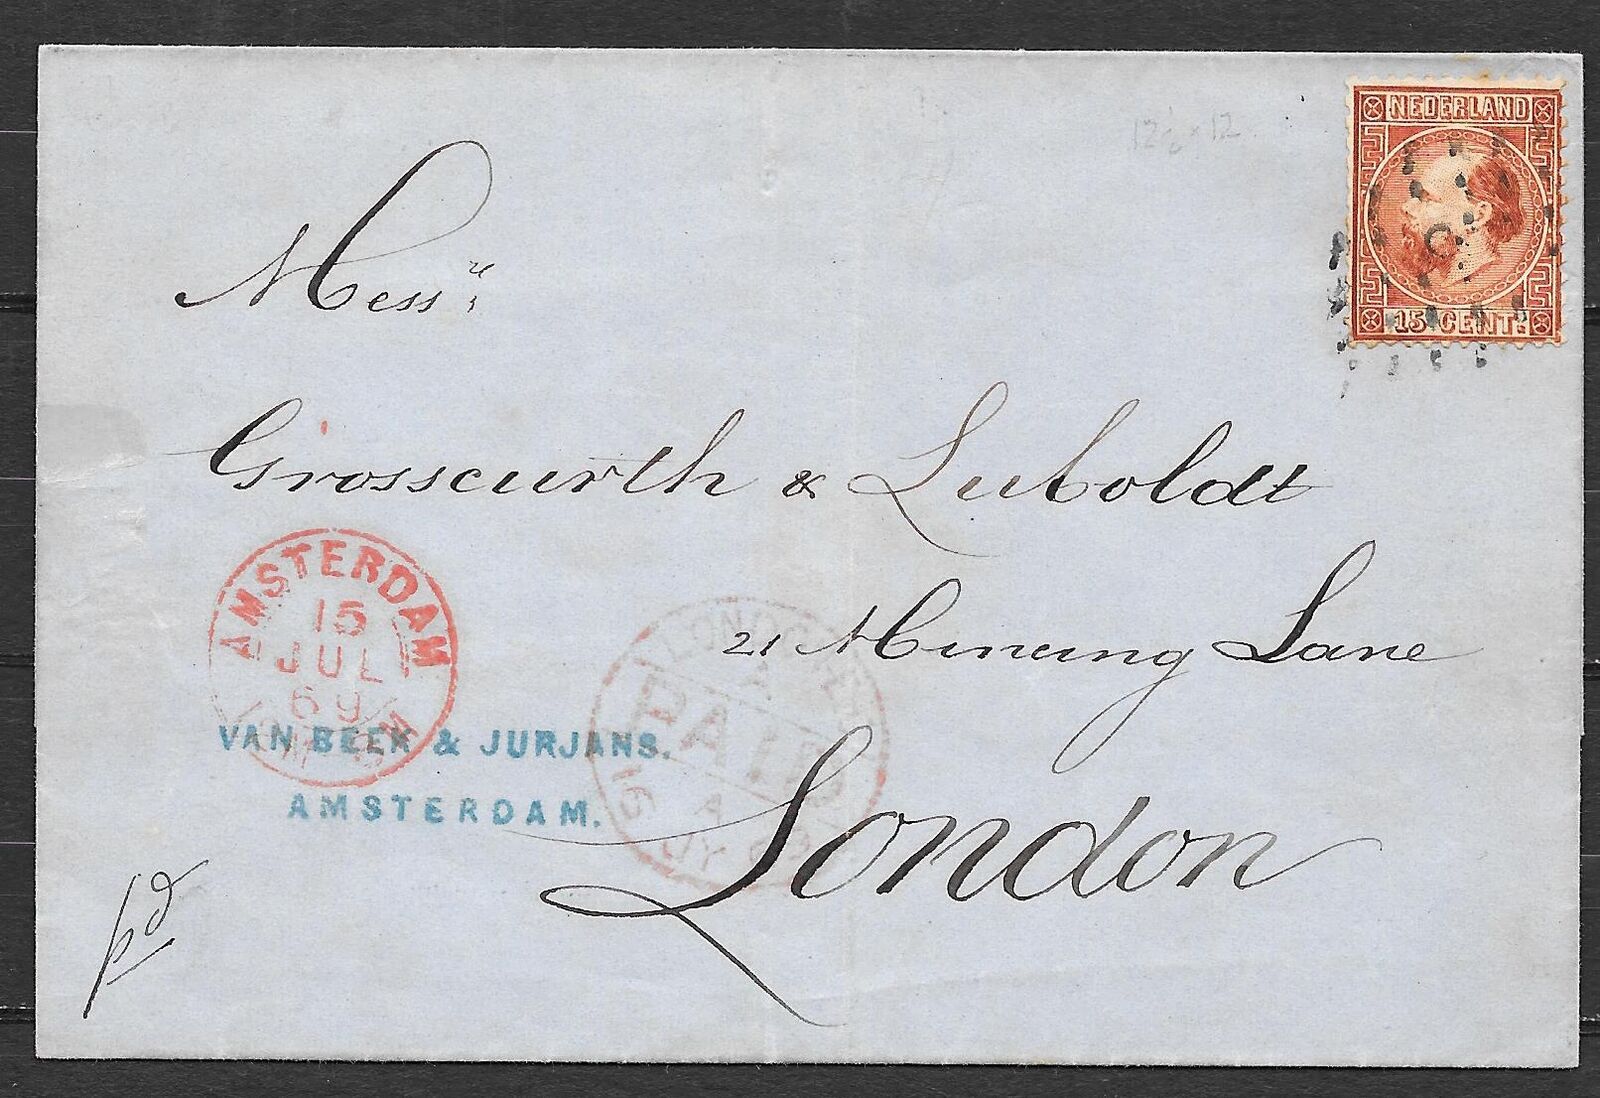 NEDERLAND
15 CENT.
12½ × 12
Messrs
Grosscurth & Luboldt
21 Mincing Lane
London
AMSTERDAM
15
JUL
69
VAN BEEK & JURJANS.
AMSTERDAM.
LONDON
PAID
A
16 JY 69
pd